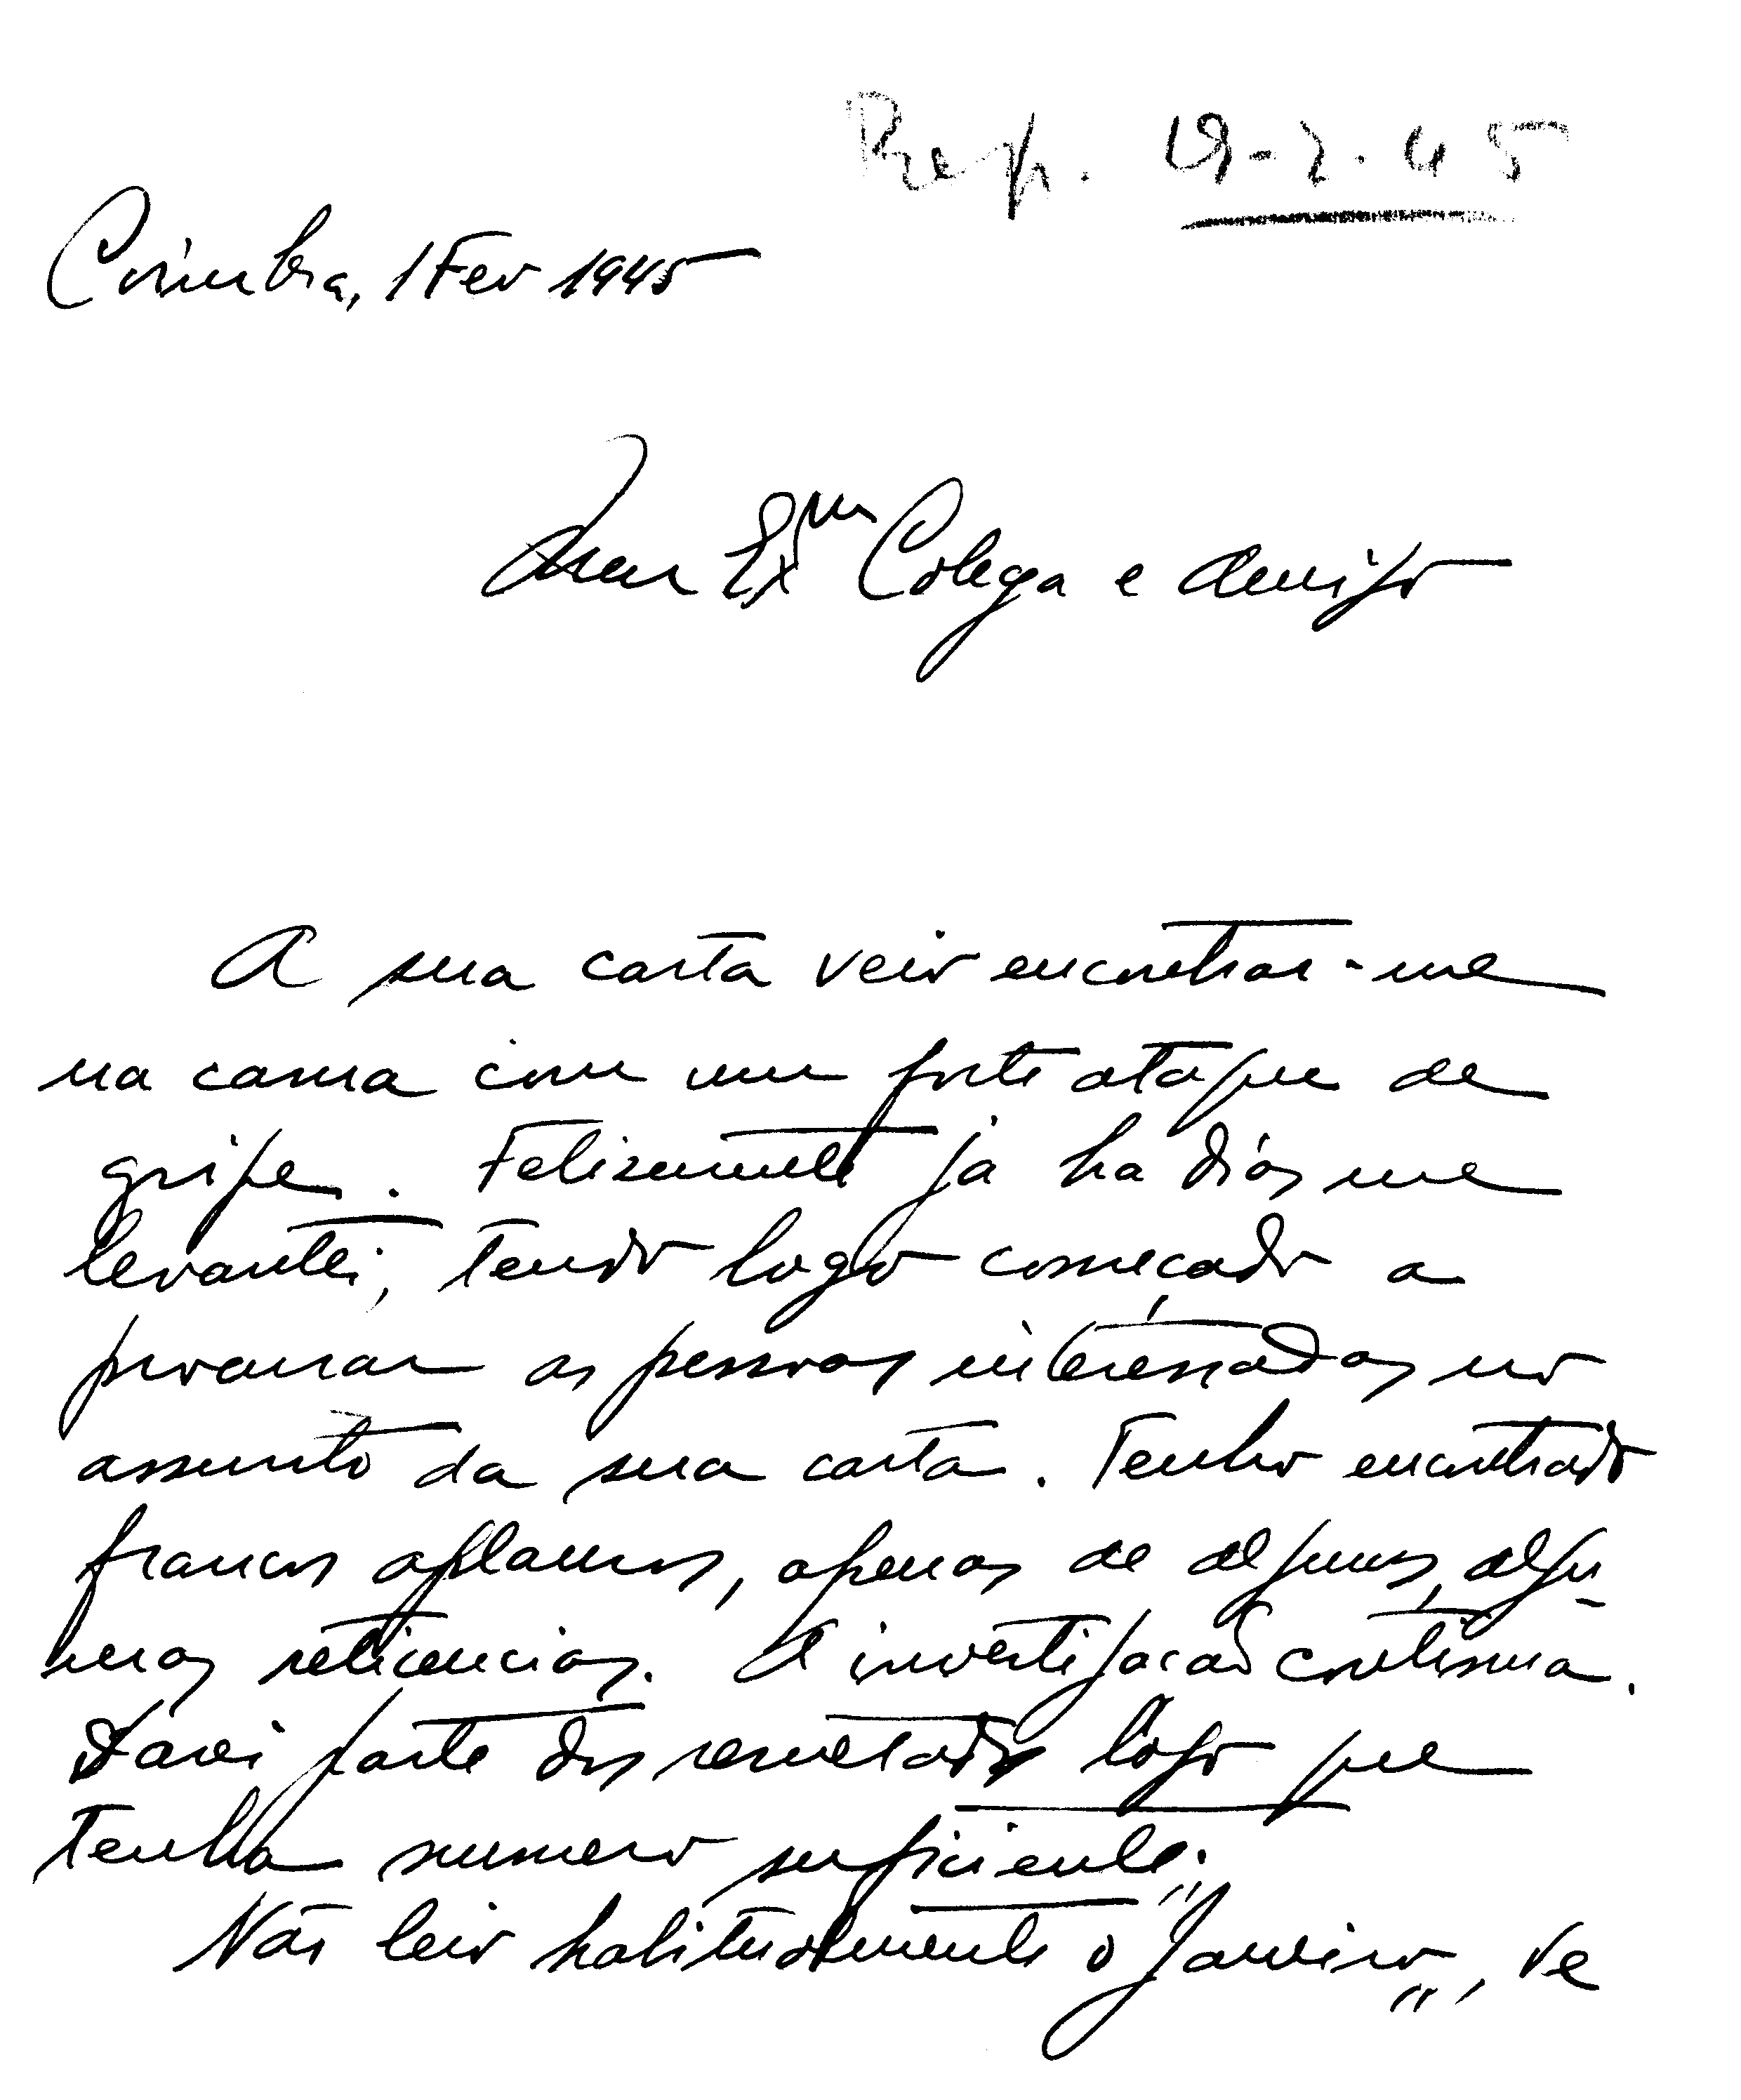 Resp. 19-2.45
Coimbra, 1 Fev 1945
Meu Exmo Colega e Amigo
A sua carta veio encontrar-me
na cama com um forte ataque de
gripe. Felizmente já ha dias me
levantei, tendo logo começado a
procurar as pessoas interessadas no
assunto da sua carta. Tenho encontrado
francos aplausos, apenas de alguns, algu-
mas reticencias. A investigação continua.
Darei parte dos resultados logo que
tenha numero suficiente.
Não leio habitualmente o "Janeiro", de